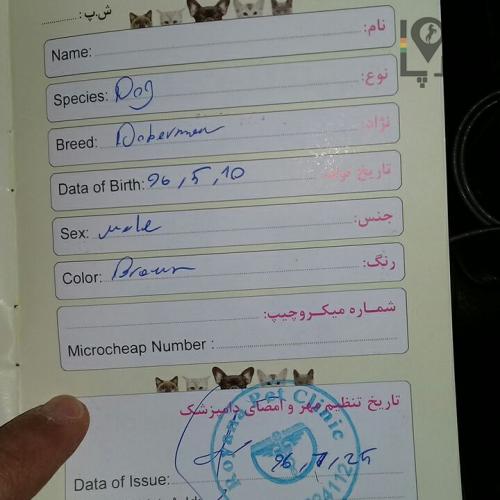 ش.پ:
Name: نام:
Species: Dog نوع:
Breed: Dobermen نژاد:
Data of Birth: 96,5,10 تاریخ تولد
Sex: male جنس:
Color: Brown رنگ:
شماره میکروچیپ:
Microcheap Number :
تاریخ تنظیم مهر و امضای دامپزشک
Royana Pet Clinic
Data of Issue: 96, , 25